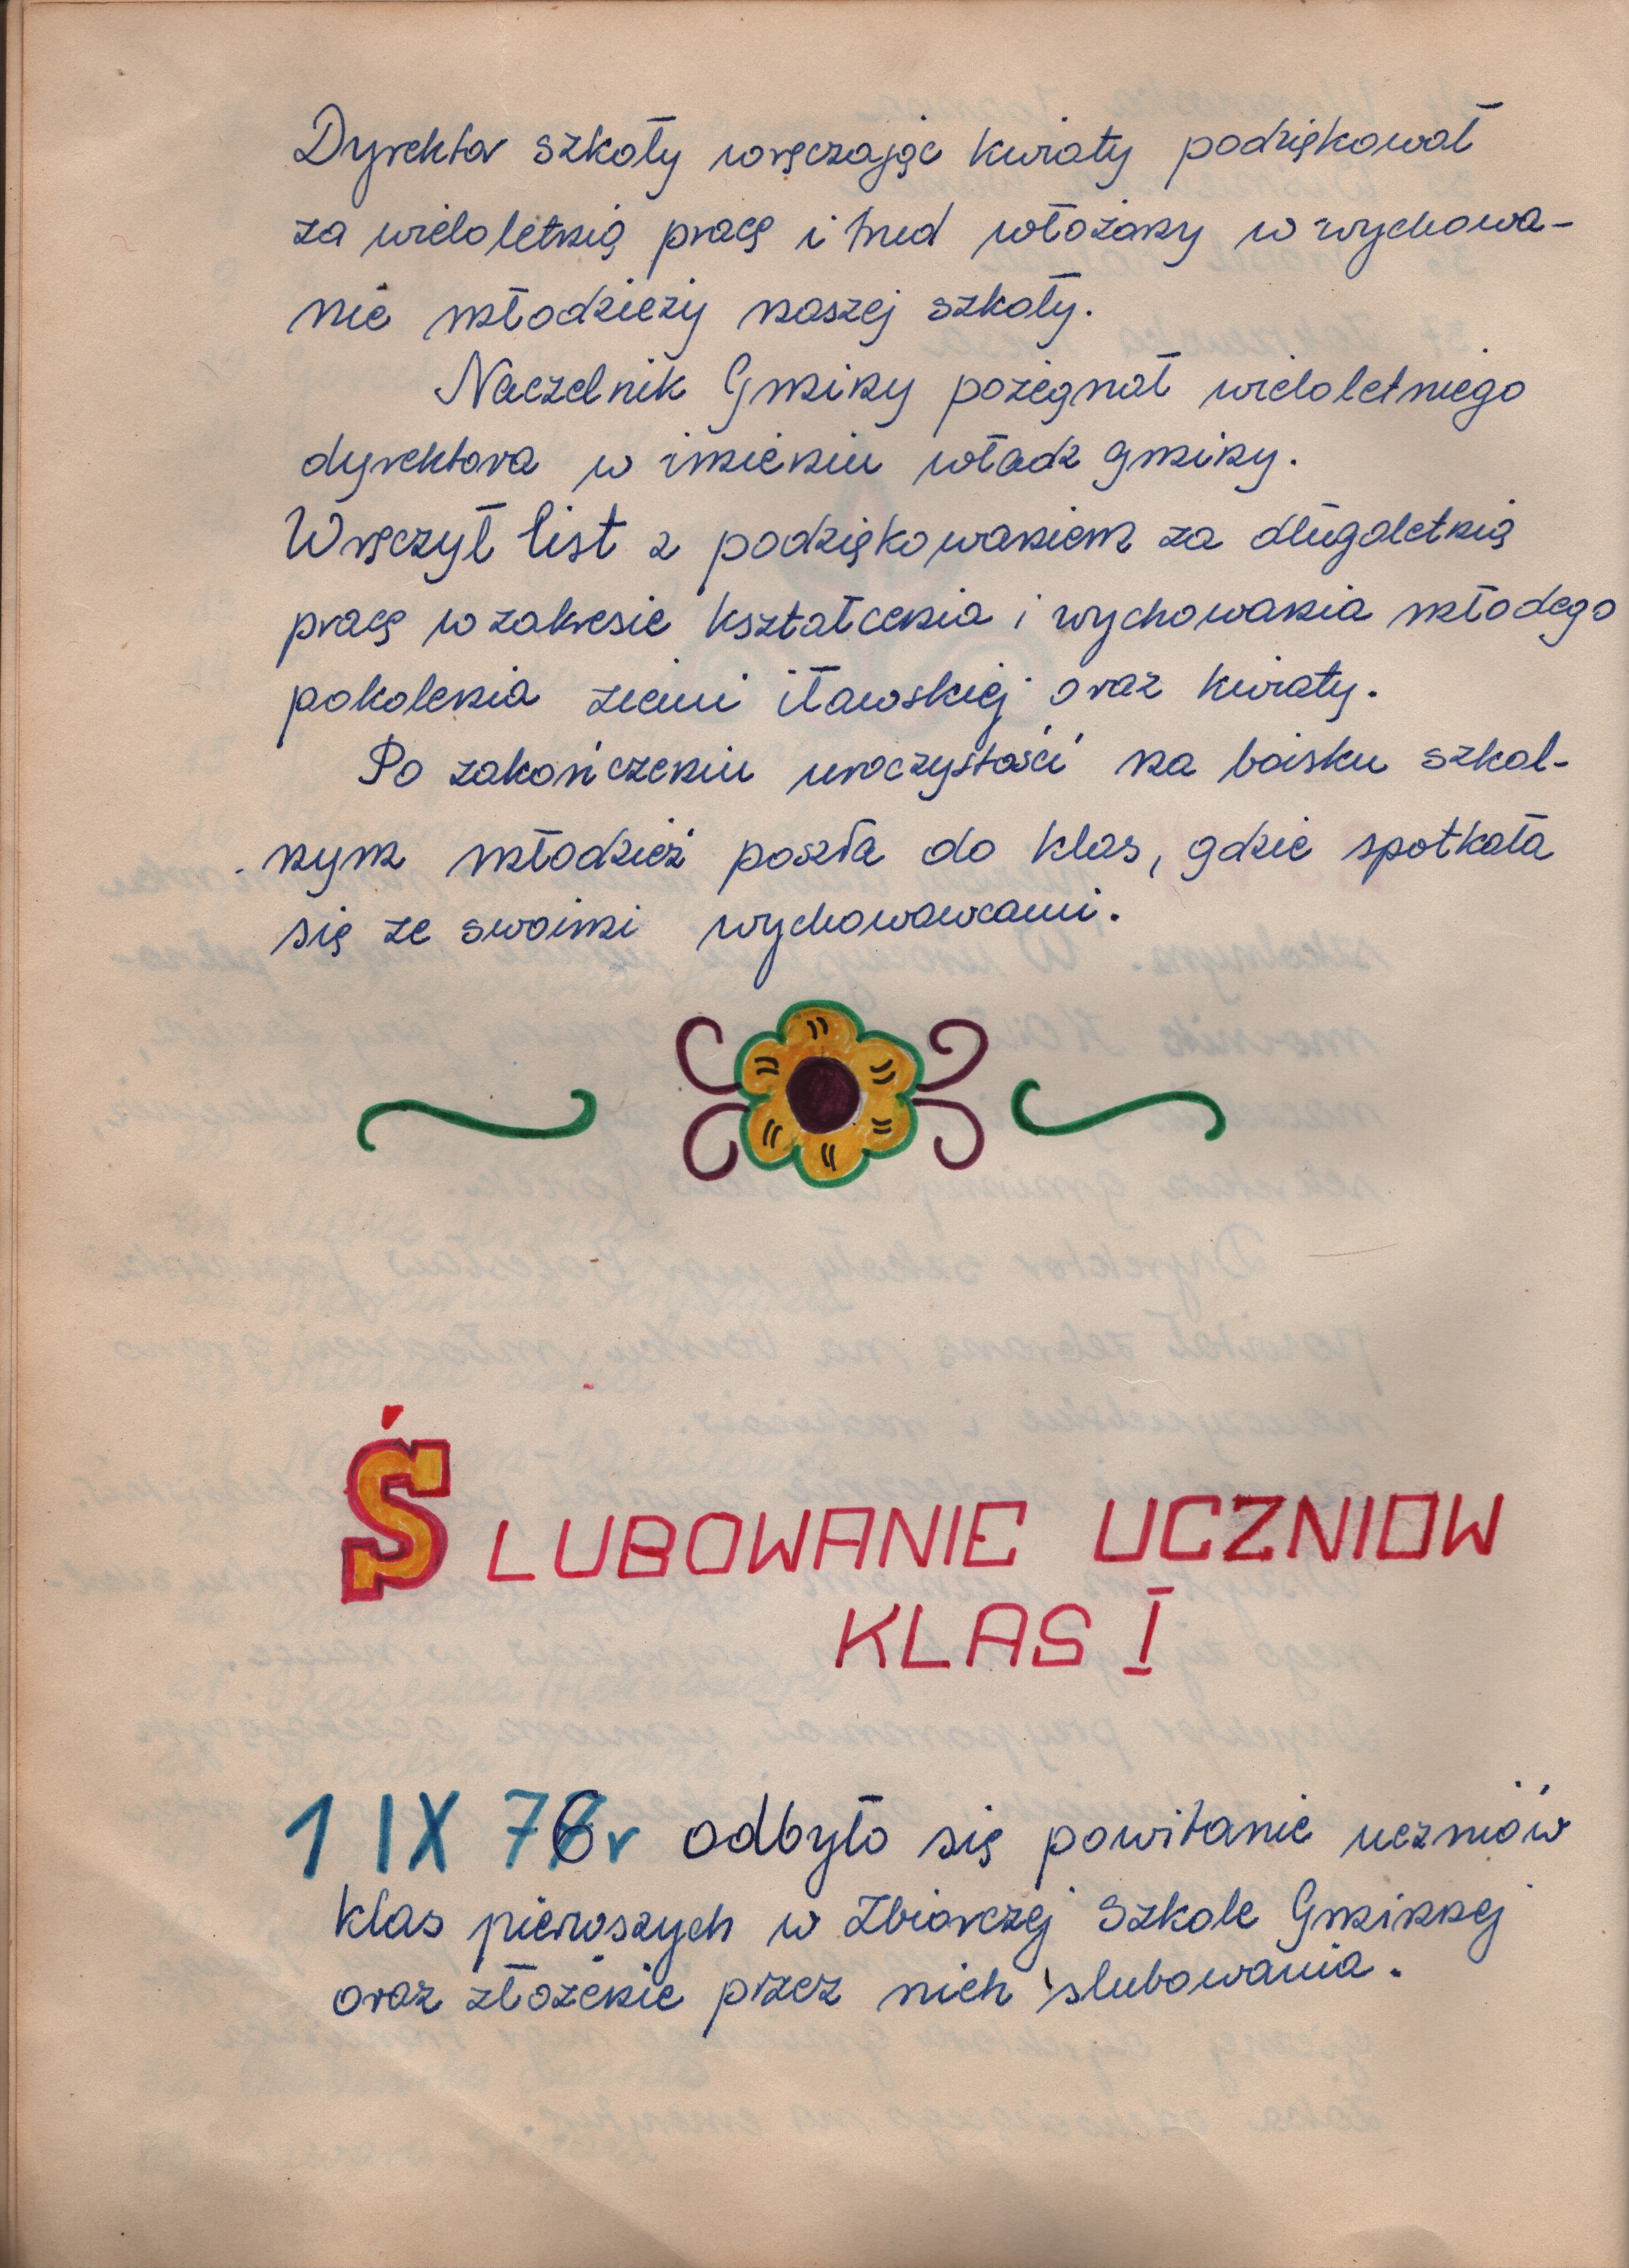 Dyrektor szkoły wręczając kwiaty podziękował
za wieloletnią pracę i trud włożony w wychowa-
nie młodzieży naszej szkoły.
Naczelnik Gminy pożegnał wieloletniego
dyrektora w imieniu władz gminy.
Wręczył list z podziękowaniem za długoletnią
pracę w zakresie kształcenia i wychowania młodego
pokolenia ziemi iławskiej oraz kwiaty.
Po zakończeniu uroczystości na boisku szkol-
nym młodzież poszła do klas, gdzie spotkała
się ze swoimi wychowawcami.
ŚLUBOWANIE UCZNIOW
KLAS I
1 IX 76r odbyło się powitanie uczniów
klas pierwszych w Zbiorczej Szkole Gminnej
oraz złożenie przez nich ślubowania.